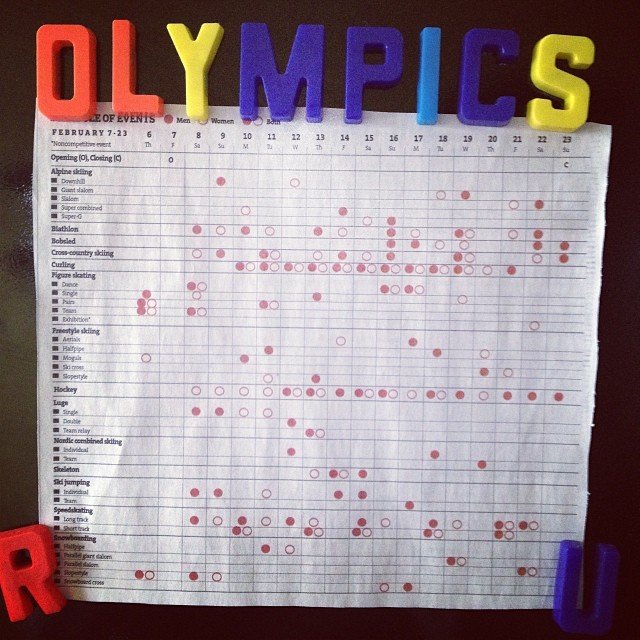 OLYMPICS
LE OF EVENTS Men Women Both
FEBRUARY 7-23 6 7 8 9 10 11 12 13 14 15 16 17 18 19 20 21 22 23
*Noncompetitive event Th F Sa Su M Tu W Th F Sa Su M Tu W Th F Sa Su
Opening (O), Closing (C) O C
Alpine skiing
Downhill
Giant slalom
Slalom
Super combined
Super-G
Biathlon
Bobsled
Cross-country skiing
Curling
Figure skating
Dance
Single
Pairs
Team
Exhibition*
Freestyle skiing
Aerials
Halfpipe
Moguls
Ski cross
Slopestyle
Hockey
Luge
Single
Double
Team relay
Nordic combined skiing
Individual
Team
Skeleton
Ski jumping
Individual
Team
Speedskating
Long track
Short track
Snowboarding
Halfpipe
Parallel giant slalom
Parallel slalom
Slopestyle
Snowboard cross
R U